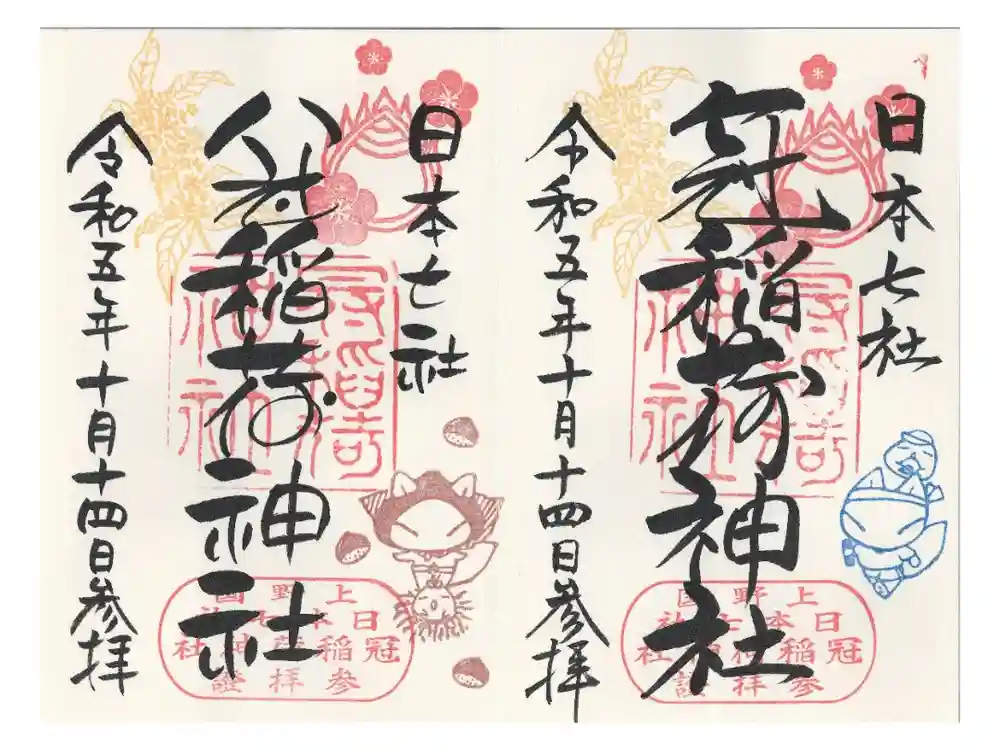 日本七社
冠稲荷神社
令和五年十月十四日参拝
上野国
日本七社
冠稲荷神社
参拝證
日本七社
冠稲荷神社
令和五年十月十四日参拝
上野国
日本七社
冠稲荷神社
参拝證